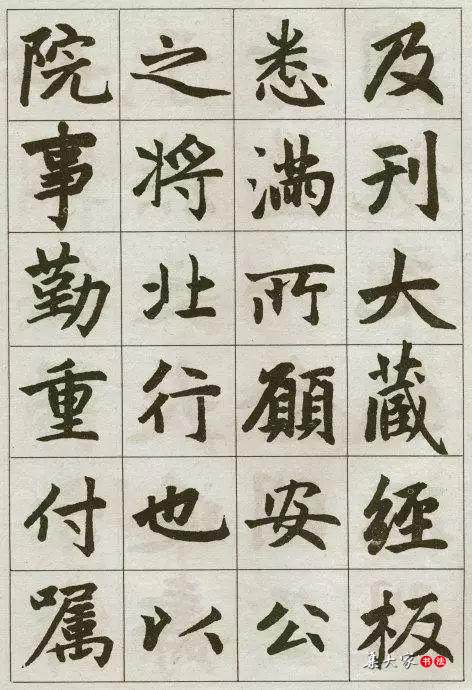 及刊大藏經板
悉滿所願安公
之將北行也以
院事勤重付嘱
集大家书法